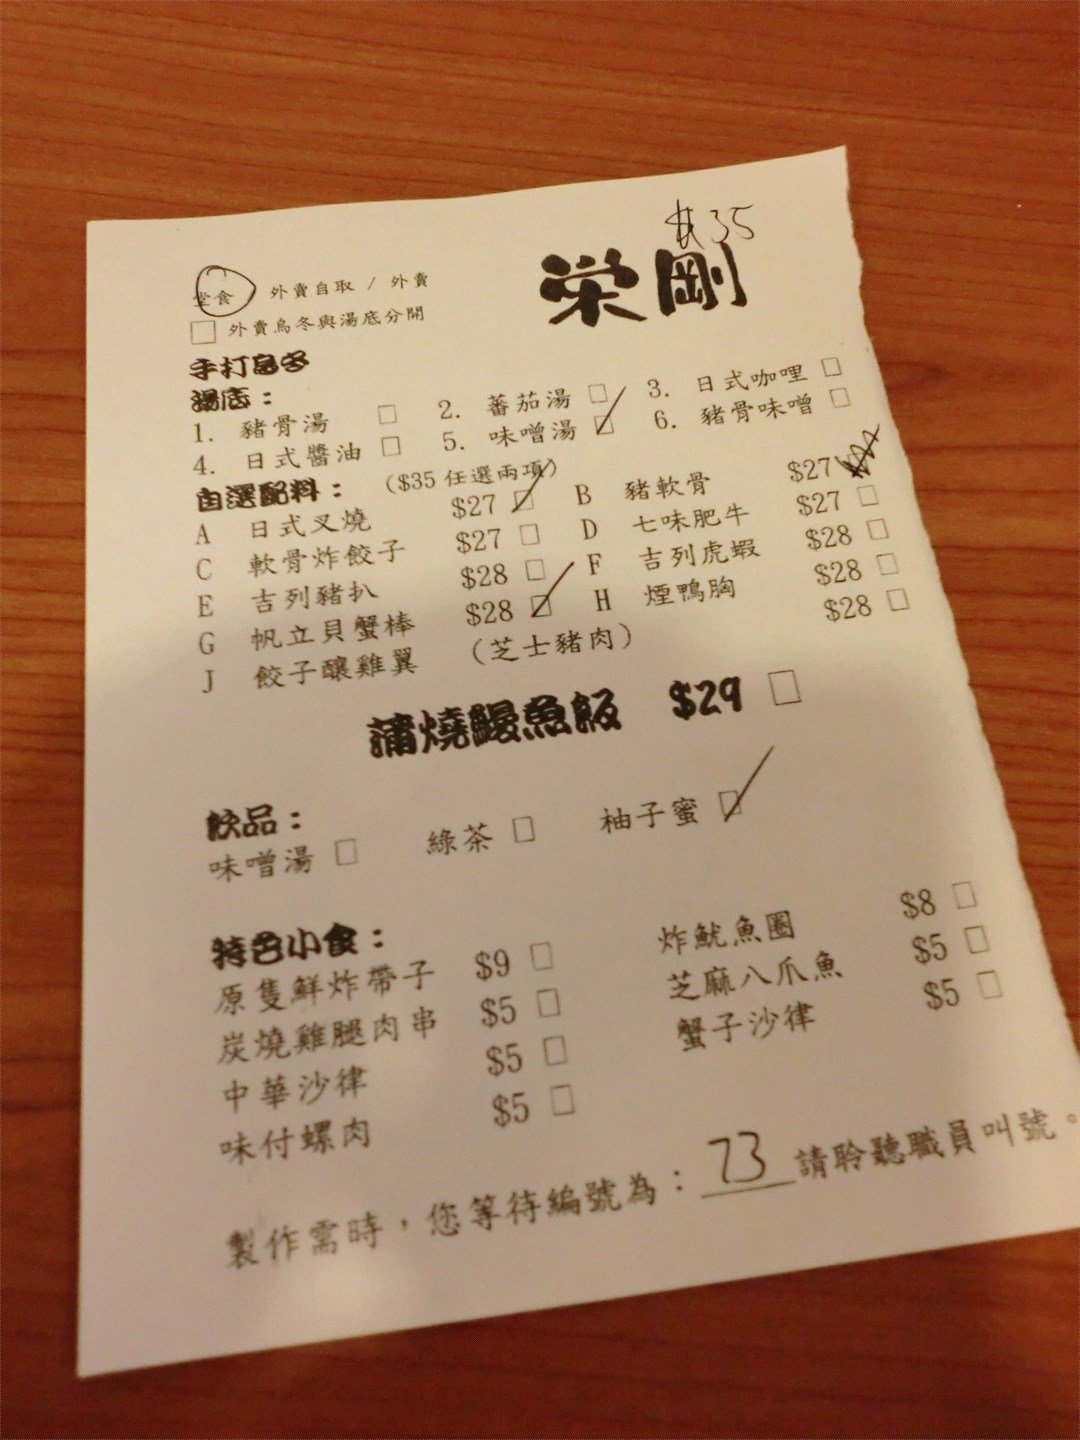 $35
栄剛
堂食 外賣自取 / 外賣
□ 外賣烏冬與湯底分開
手打烏冬
湯底：
1. 豬骨湯 □ 2. 蕃茄湯 □ 3. 日式咖哩 □
4. 日式醬油 □ 5. 味噌湯 □ 6. 豬骨味噌 □
自選配料： ($35 任選兩項)
A 日式叉燒 $27 □ B 豬軟骨 $27
C 軟骨炸餃子 $27 □ D 七味肥牛 $27 □
E 吉列豬扒 $28 □ F 吉列虎蝦 $28 □
G 帆立貝蟹棒 $28 □ H 煙鴨胸 $28 □
J 餃子釀雞翼 (芝士豬肉) $28 □
蒲燒鰻魚飯 $29 □
飲品：
味噌湯 □ 綠茶 □ 柚子蜜 □
特色小食：
原隻鮮炸帶子 $9 □ 炸魷魚圈 $8 □
炭燒雞腿肉串 $5 □ 芝麻八爪魚 $5 □
中華沙律 $5 □ 蟹子沙律 $5 □
味付螺肉 $5 □
製作需時，您等待編號為：73 請聆聽職員叫號。